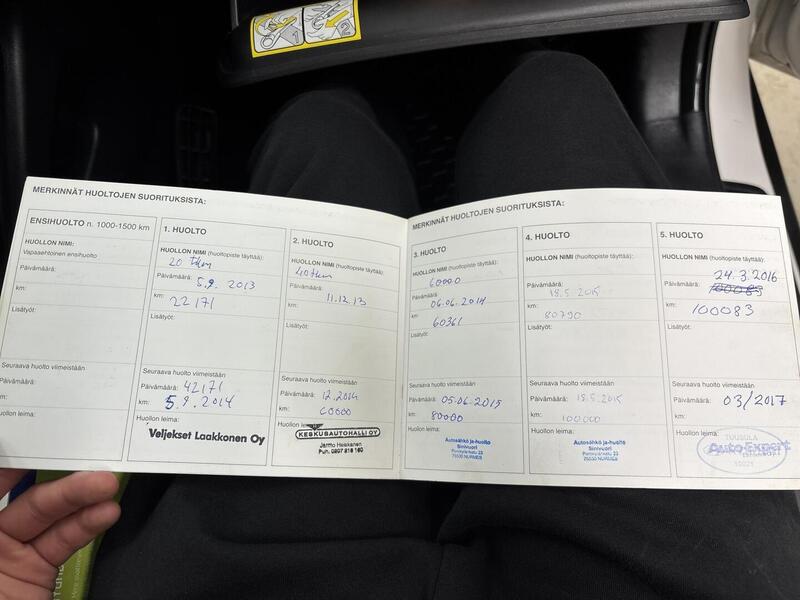 1
2
MERKINNÄT HUOLTOJEN SUORITUKSISTA:
ENSIHUOLTO n. 1000-1500 km
HUOLLON NIMI:
Vapaaehtoinen ensihuolto
Päivämäärä:
km:
Lisätyöt:
Seuraava huolto viimeistään
Päivämäärä:
km:
Huollon leima:
1. HUOLTO
HUOLLON NIMI (huoltopiste täyttää):
20 tkm
Päivämäärä: 5.9. 2013
km: 22171
Lisätyöt:
Seuraava huolto viimeistään
Päivämäärä: 42171
km: 5.9.2014
Huollon leima:
Veljekset Laakkonen Oy
2. HUOLTO
HUOLLON NIMI (huoltopiste täyttää):
40tkm
Päivämäärä: 11.12.13
km:
Lisätyöt:
Seuraava huolto viimeistään
Päivämäärä: 12.2014
km: 60000
Huollon leima:
KESKUSAUTOHALLI OY
Jarmo Heikkanen
MERKINNÄT HUOLTOJEN SUORITUKSISTA:
3. HUOLTO
HUOLLON NIMI (huoltopiste täyttää):
60000
Päivämäärä: 06.06.2014
km: 60361
Lisätyöt:
Seuraava huolto viimeistään
Päivämäärä: 05.06.2015
km: 80000
Huollon leima:
Autosähkö ja-huolto
Sinivuori
Porokylänkatu 23
75530 NURMES
4. HUOLTO
HUOLLON NIMI (huoltopiste täyttää):
Päivämäärä: 18.5.2015
km: 80790
Lisätyöt:
Seuraava huolto viimeistään
Päivämäärä: 18.5.2015
km: 100000
Huollon leima:
Autosähkö ja-huolto
Sinivuori
Porokylänkatu 23
75530 NURMES
5. HUOLTO
HUOLLON NIMI (huoltopiste täyttää):
24.3.2016
Päivämäärä: 100083
km: 100083
Lisätyöt:
Seuraava huolto viimeistään
Päivämäärä: 03/2017
km:
Huollon leima:
TUUSULA
Auto-Expert